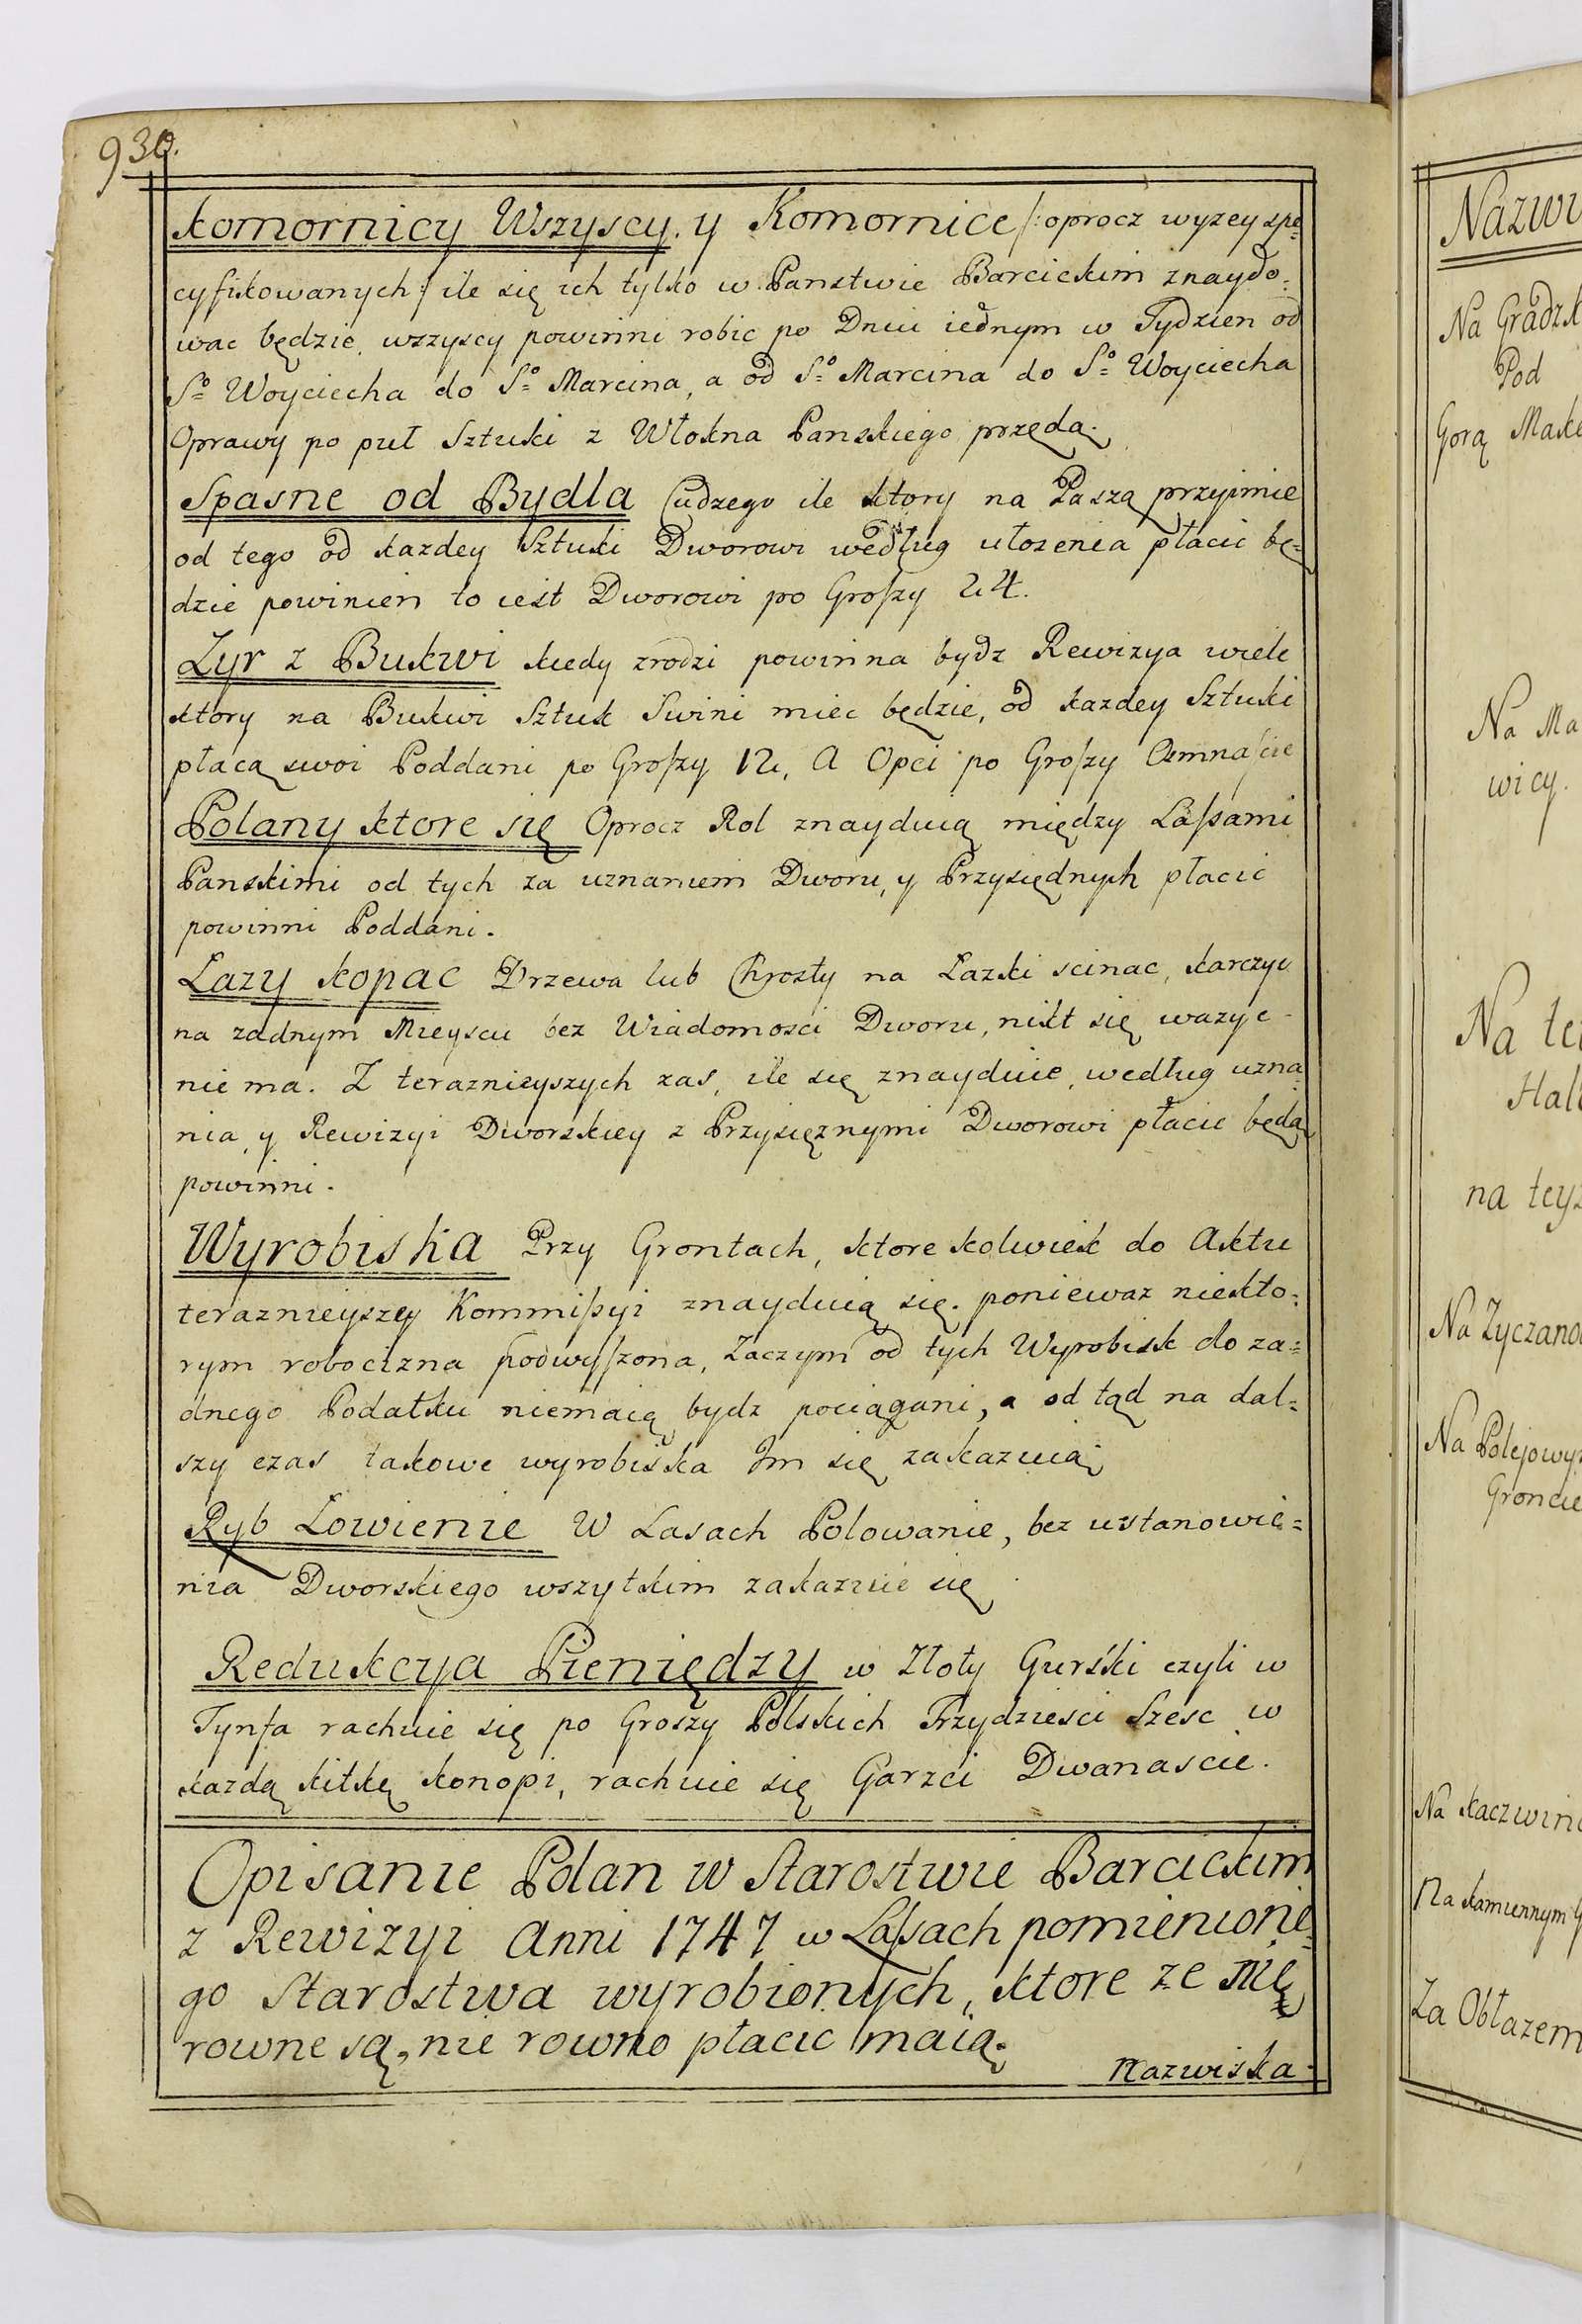 930.
Komornicy Wszyscy. y Komornice /: oprocz wyzey spe=
cyfikowanych :/ ile się ich tylko w Panstwie Barcickim znaydo=
wac będzie, wszyscy powinni robic po Dniu iednym w Tydzien od
So= Woyciecha do So= Marcina, a od So= Marcina do So= Woyciecha
Oprawy po puł Sztuki z Włokna Panskiego przędą.
Spasne od Bydla Cudzego ile ktory na Paszą przyimie
od tego od kazdey Sztuki Dworowi według ułozenia płacic bę=
dzie powinien to iest Dworowi po Groszy 24.
Zyr z Bukwi kiedy zrodzi powinna bydz Rewizya wiele
ktory na Bukwi Sztuk Swini miec będzie, od kazdey Sztuki
płacą swoi Poddani po Groszy 12, A Opci po Groszy Osmnaście
Polany ktore się Oprocz Rol znayduią między Lassami
Panskimi od tych za uznaniem Dworu, y Przysiędnych płacic
powinni Poddani.
Łazy kopac Drzewa lub Chrosty na Łazki scinac, karczyc
na zadnym Mieyscu bez Wiadomosci Dworu, nikt się wazyc
nie ma. Z teraznieyszych zas, ile się znayduie, według uzna
nia, y Rewizyi Dworskiey z Przysięznymi Dworowi płacic będą
powinni.
Wyrobiska Przy Grontach, ktore kolwiek do Aktu
teraznieyszey Kommissyi znayduią się. poniewaz niekto=
rym robocizna podwyszona, Zaczym od tych Wyrobisk do za=
dnego Podatku niemaią bydz pociągani, a od tąd na dal=
szy czas takowe wyrobiska Im się zakazuią.
Ryb Łowienie W Lasach Polowanie, bez ustanowie=
nia Dworskiego wszytkim zakazuie się
Redukcya Pieniędzy w Złoty Gurski czyli w
Tynfa rachuie się po Groszy Polskich Trzydziesci Szesc w
kazdą kitkę konopi, rachuie się Garzci Dwanascie.
Opisanie Polan w Starostwie Barcickim
z Rewizyi Anni 1747 w Lassach pomienione=
go Starostwa wyrobionych, ktore ze nie
rowne są, nie rowno płacic maią.
Nazwiska
Nazwi
Na Gradzk
Pod
Gorą Mak
Na Ma
wicy.
Na te
Hal
na tey
Na Zyczano
Na Polejowy
Groncie
Na kaczwin
Na kamiennym
Za Obłazem